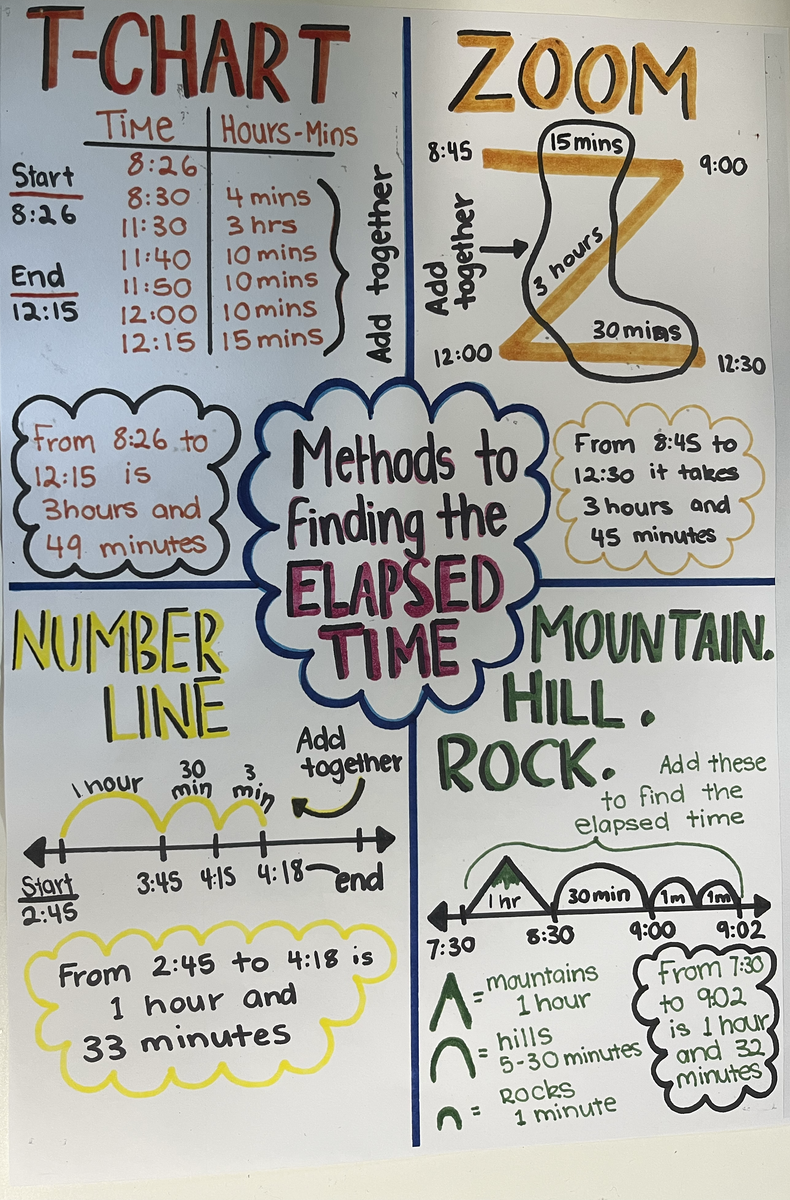 T-CHART
Time Hours-Mins
Start
8:26
End
12:15
8:26
8:30 4 mins
11:30 3 hrs
11:40 10 mins
11:50 10 mins
12:00 10 mins
12:15 15 mins
Add together
From 8:26 to
12:15 is
3 hours and
49 minutes
ZOOM
8:45 15 mins 9:00
Add
together
3 hours
30 mins
12:00 12:30
From 8:45 to
12:30 it takes
3 hours and
45 minutes
Methods to
finding the
ELAPSED
TIME
NUMBER
LINE
Add
together
1 hour 30 min 3 min
Start
2:45
3:45 4:15 4:18 end
From 2:45 to 4:18 is
1 hour and
33 minutes
MOUNTAIN.
HILL.
ROCK.
Add these
to find the
elapsed time
1 hr 30 min 1m 1m
7:30 8:30 9:00 9:02
= mountains
1 hour
= hills
5-30 minutes
= Rocks
1 minute
From 7:30
to 9:02
is 1 hour
and 32
minutes